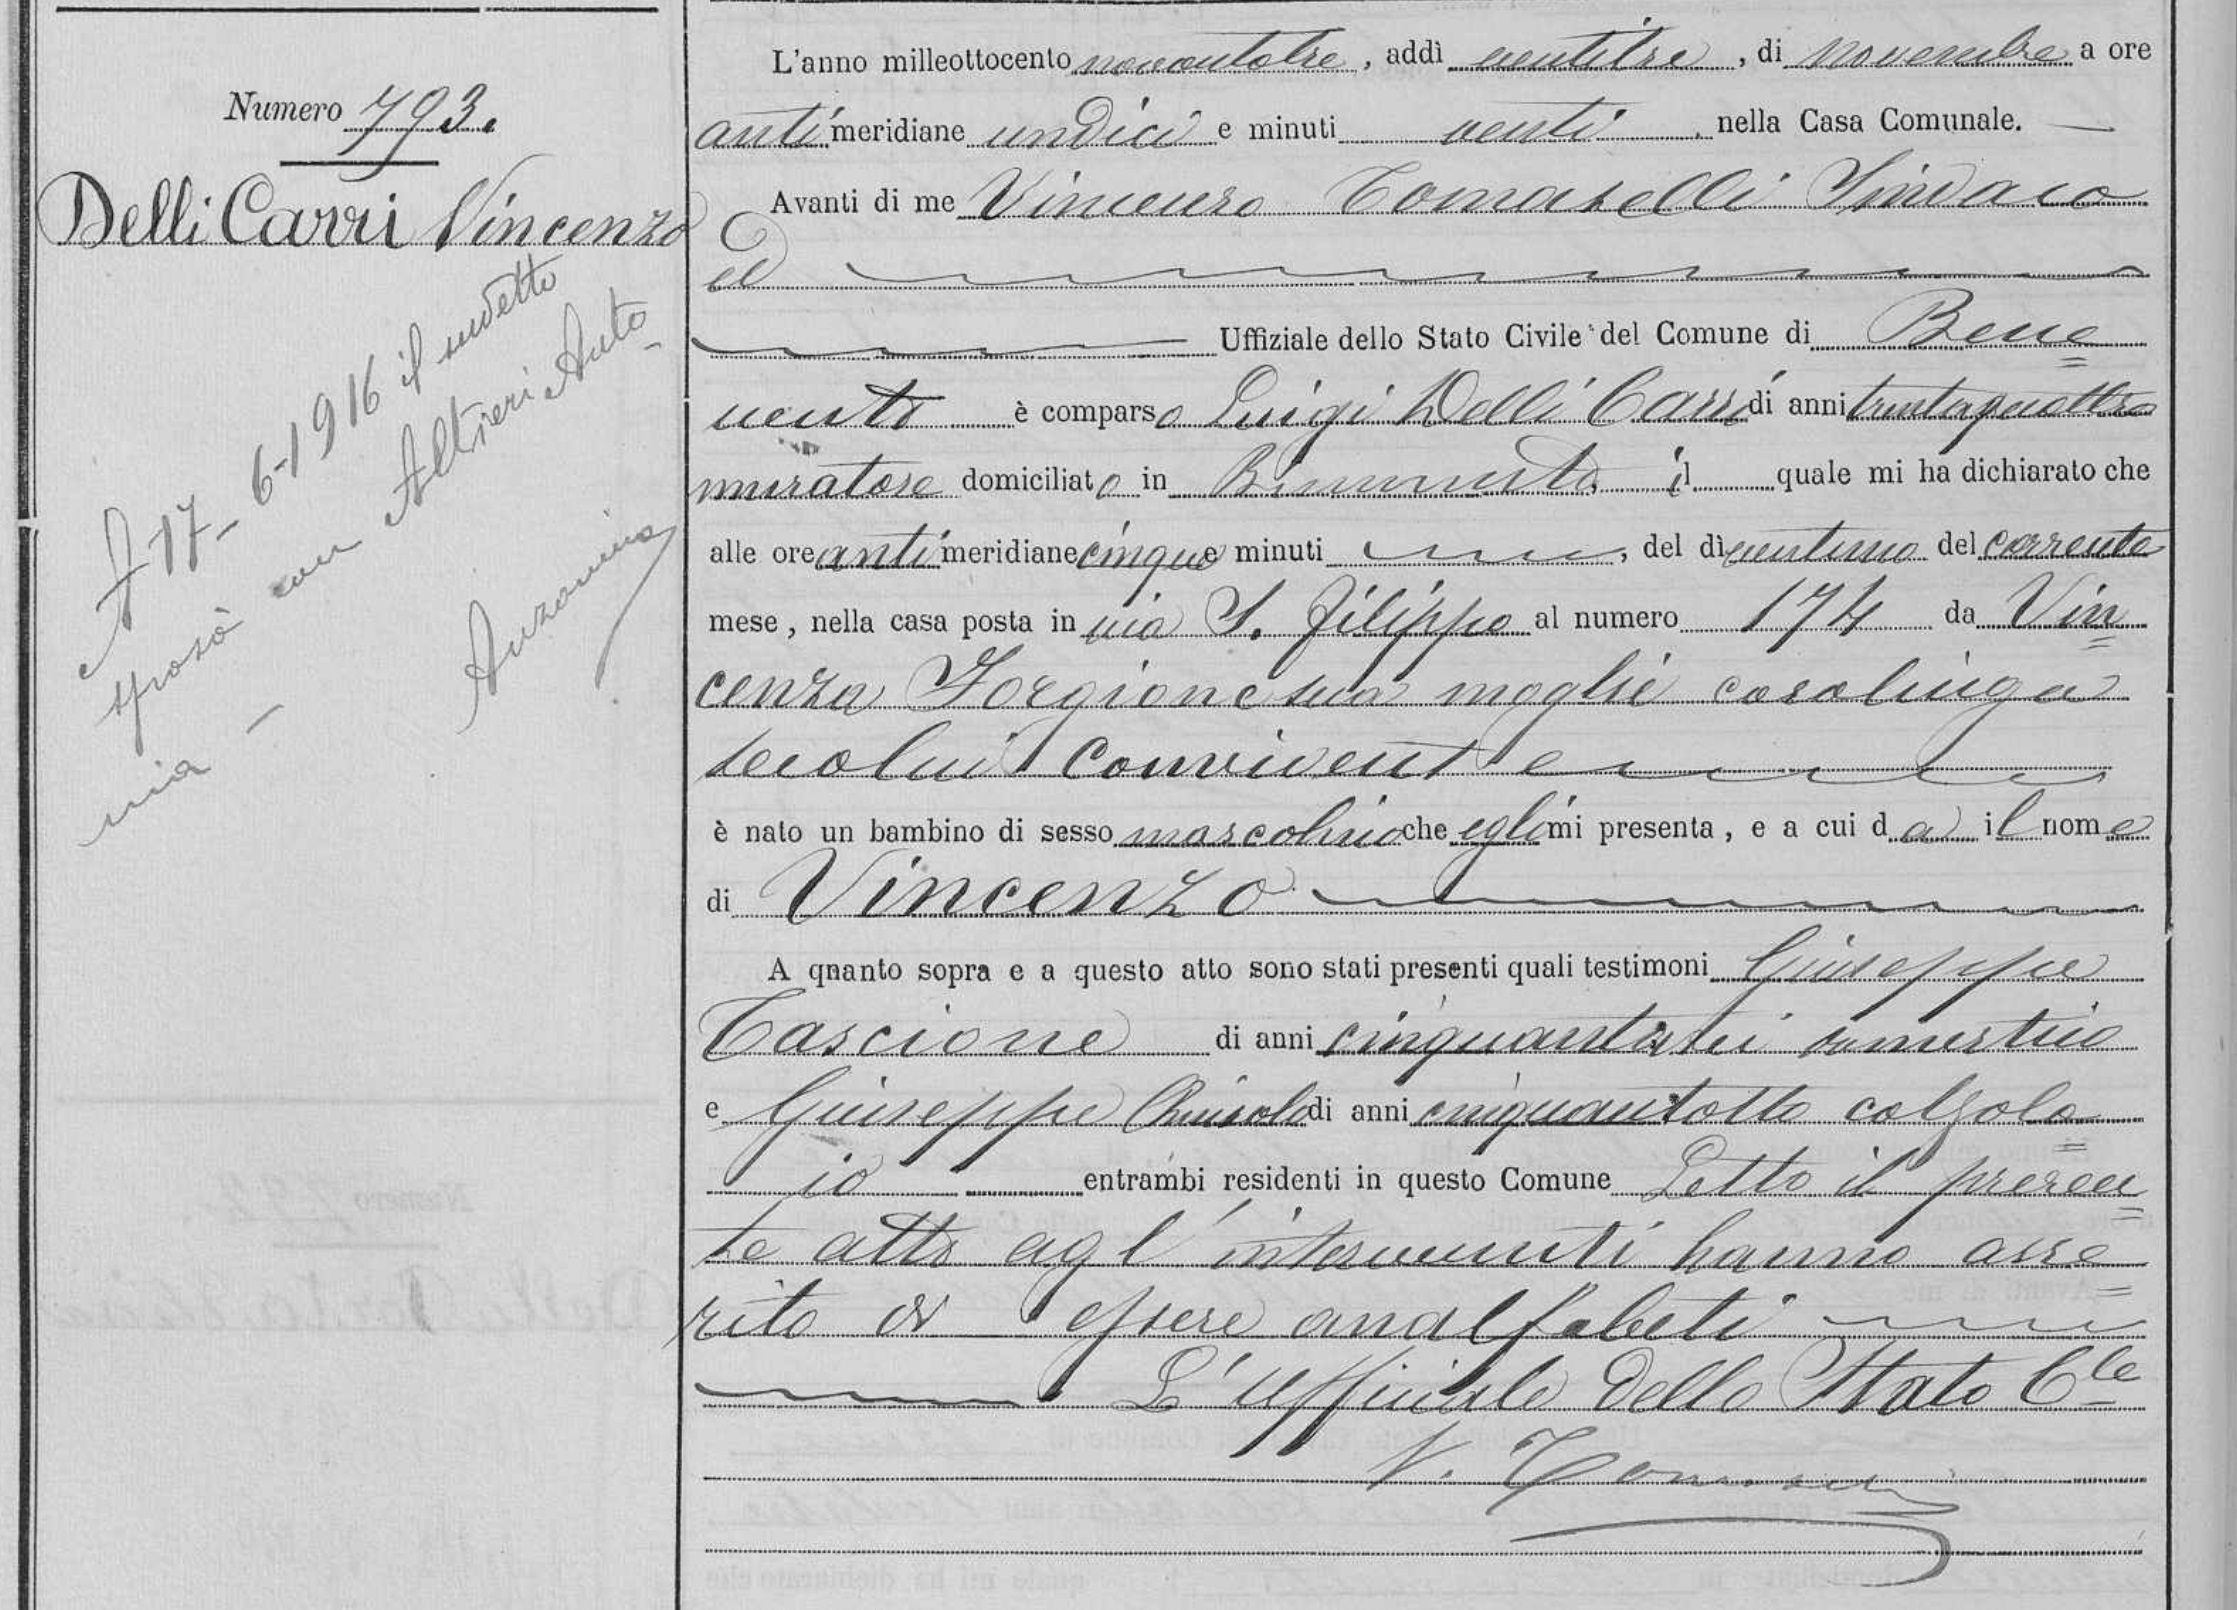 Numero 793.
Delli Carri Vincenzo
17-6-1916 il sudetto
sposò con Altrieri Anto
nia -
L'anno milleottocento novantatre, addì ventitre, di novembre a ore
antimeridiane undici e minuti venti, nella Casa Comunale.
Avanti di me Vincenzo Tomaselli Sindaco
ed
Uffiziale dello Stato Civile del Comune di Bene=
vento è comparso Luigi Delli Carri di anni trentaquattro
muratore domiciliato in Benevento, il quale mi ha dichiarato che
alle ore antimeridiane cinque e minuti, del dì ventuno del corrente
mese, nella casa posta in via S. Filippo al numero 174 da Vin=
cenza Forgione sua moglie casalinga
secolui convivente
è nato un bambino di sesso mascolino che egli mi presenta, e a cui da il nome
di Vincenzo
A quanto sopra e a questo atto sono stati presenti quali testimoni Giuseppe
Tascione di anni cinquantasei
e Giuseppe di anni cinquantotto calzola=
io entrambi residenti in questo Comune Letto il presen=
te atto agl'intervenuti hanno asse=
rito di essere analfabeti
L'Ufficiale dello Stato C.le
V. Tomaselli